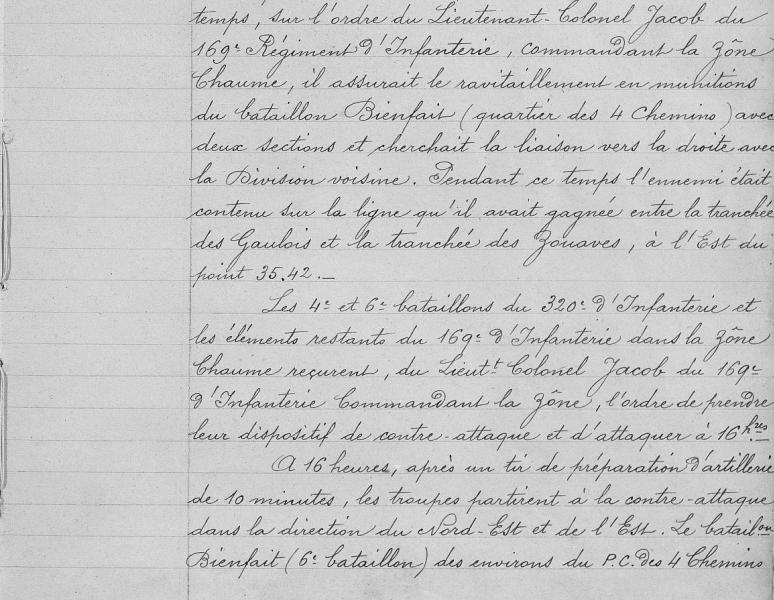 temps, sur l'ordre du Lieutenant-Colonel Jacob du
169e Régiment d'Infanterie, commandant la zône
Chaume, il assurait le ravitaillement en munitions
du bataillon Bienfait (quartier des 4 Chemins) avec
deux sections et cherchait la liaison vers la droite avec
la Division voisine. Pendant ce temps l'ennemi était
contenu sur la ligne qu'il avait gagnée entre la tranchée
des Gaulois et la tranchée des Zouaves, à l'Est du
point 35.42._
Les 4e et 6e bataillons du 320e d'Infanterie et
les éléments restants du 169e d'Infanterie dans la zône
Chaume reçurent, du Lieutt Colonel Jacob du 169e
d'Infanterie Commandant la zône, l'ordre de prendre
leur dispositif de contre-attaque et d'attaquer à 16hres
A 16 heures, après un tir de préparation d'artillerie
de 10 minutes, les troupes partirent à la contre-attaque
dans la direction du Nord-Est et de l'Est. Le bataillon
Bienfait (6e bataillon) des environs du P.C. des 4 Chemins